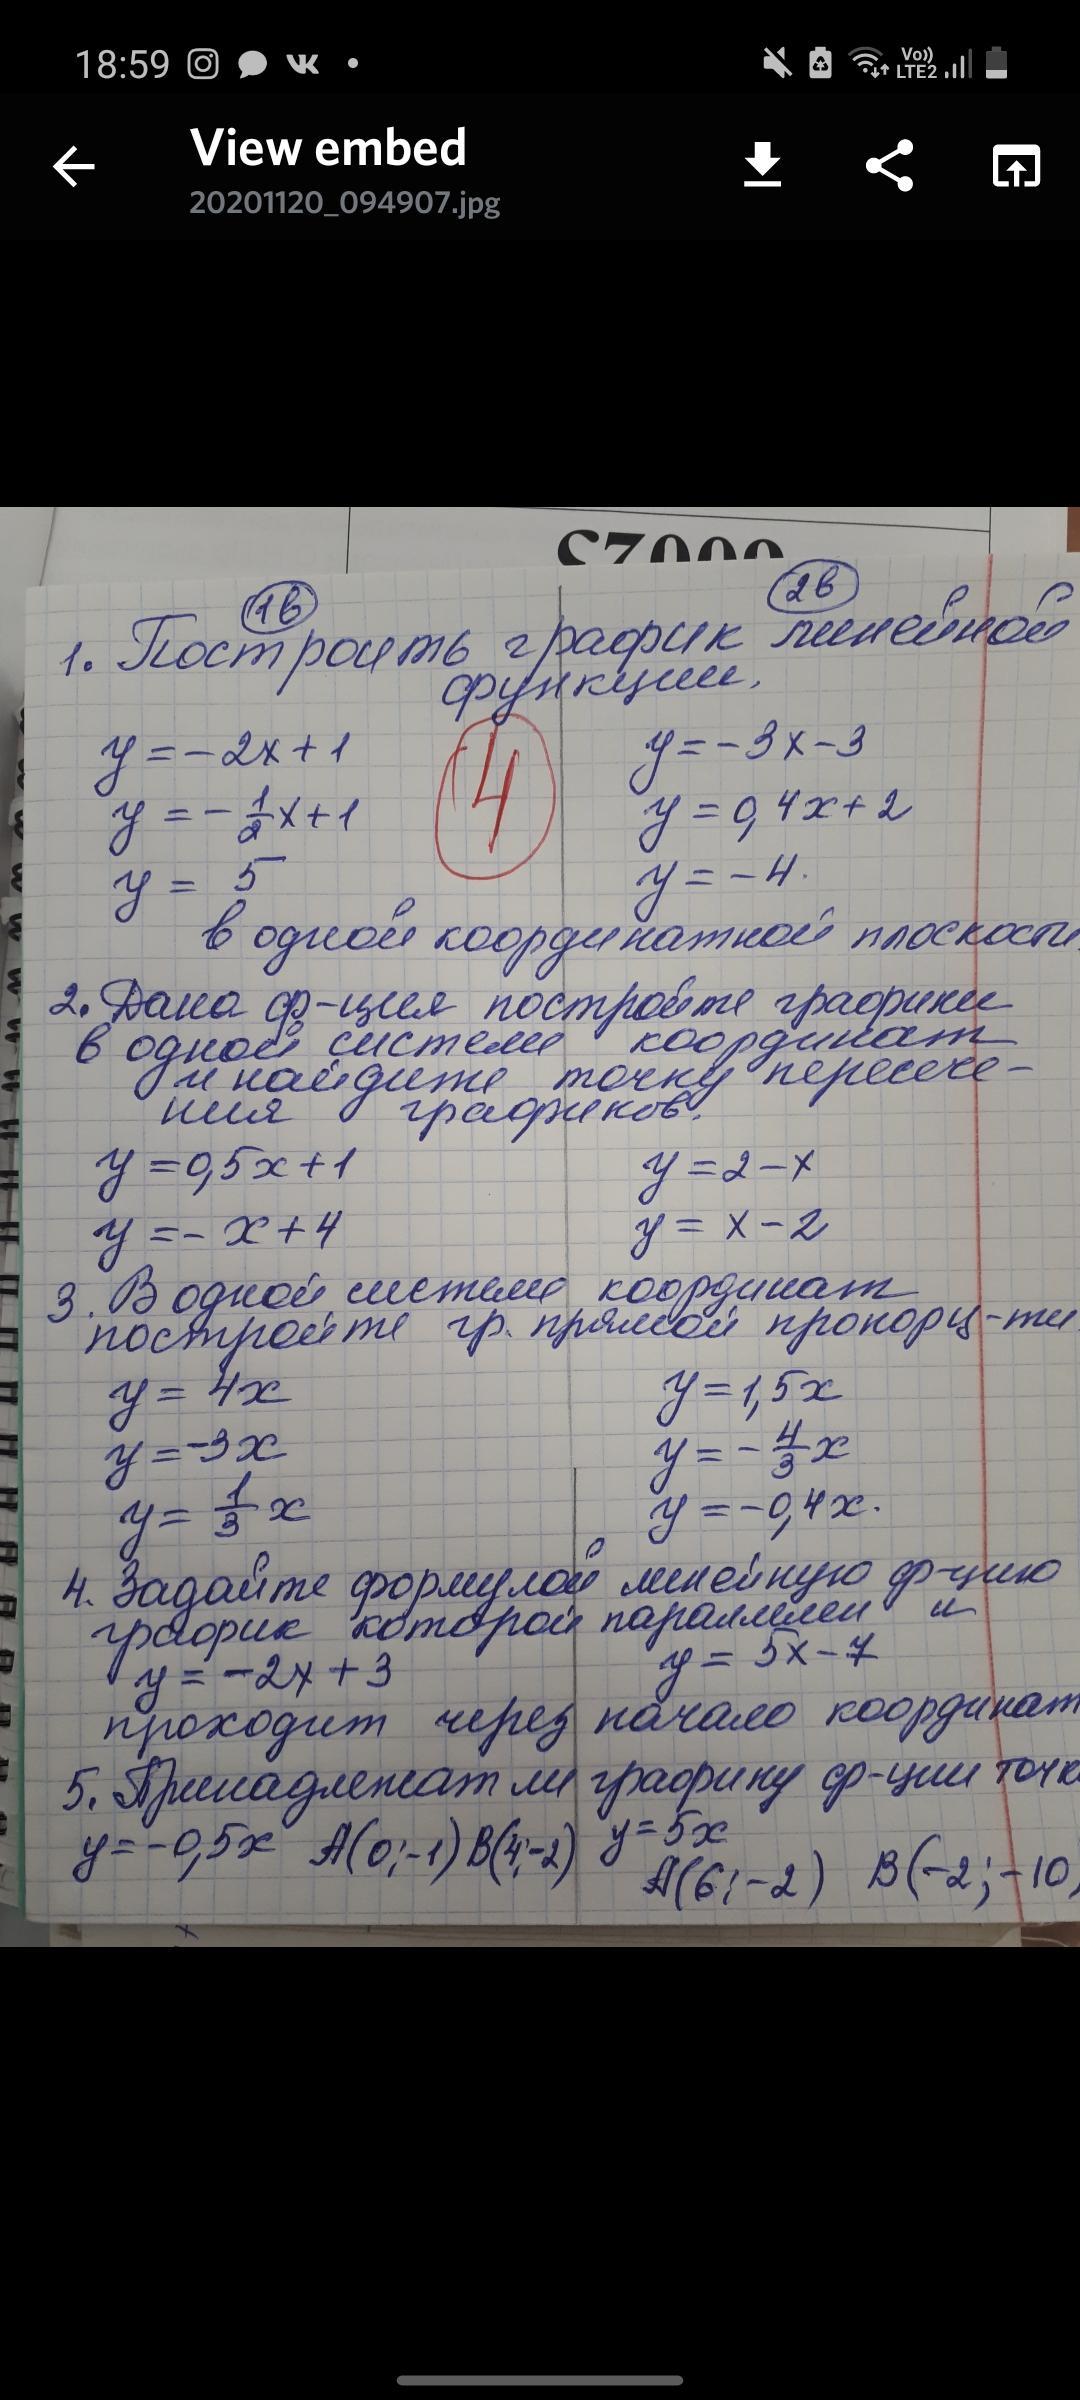 18:59
Vo))
LTE2
View embed
20201120_094907.jpg
1в
2в
1. Построить график линейной
функции.
4
y = -2x + 1
y = -3x - 3
y = -1/2x + 1
y = 0,4x + 2
y = 5
y = -4.
в одной координатной плоскости
2. Дана ф-ция постройте графики
в одной системе координат
и найдите точку пересече-
ния графиков.
y = 0,5x + 1
y = 2 - x
y = - x + 4
y = x - 2
3. В одной системе координат
постройте гр. прямой пропорц-ти
y = 4x
y = 1,5x
y = -3x
y = -4/3x
y = 1/3 x
y = -0,4x.
4. Задайте формулой линейную ф-цию
график которой параллелен и
y = -2x + 3
y = 5x - 7
проходит через начало координат
5. Принадлежат ли графику ф-ции точк
y = -0,5x A(0;-1) B(4;-2)
y = 5x
A(6;-2) B(-2;-10)